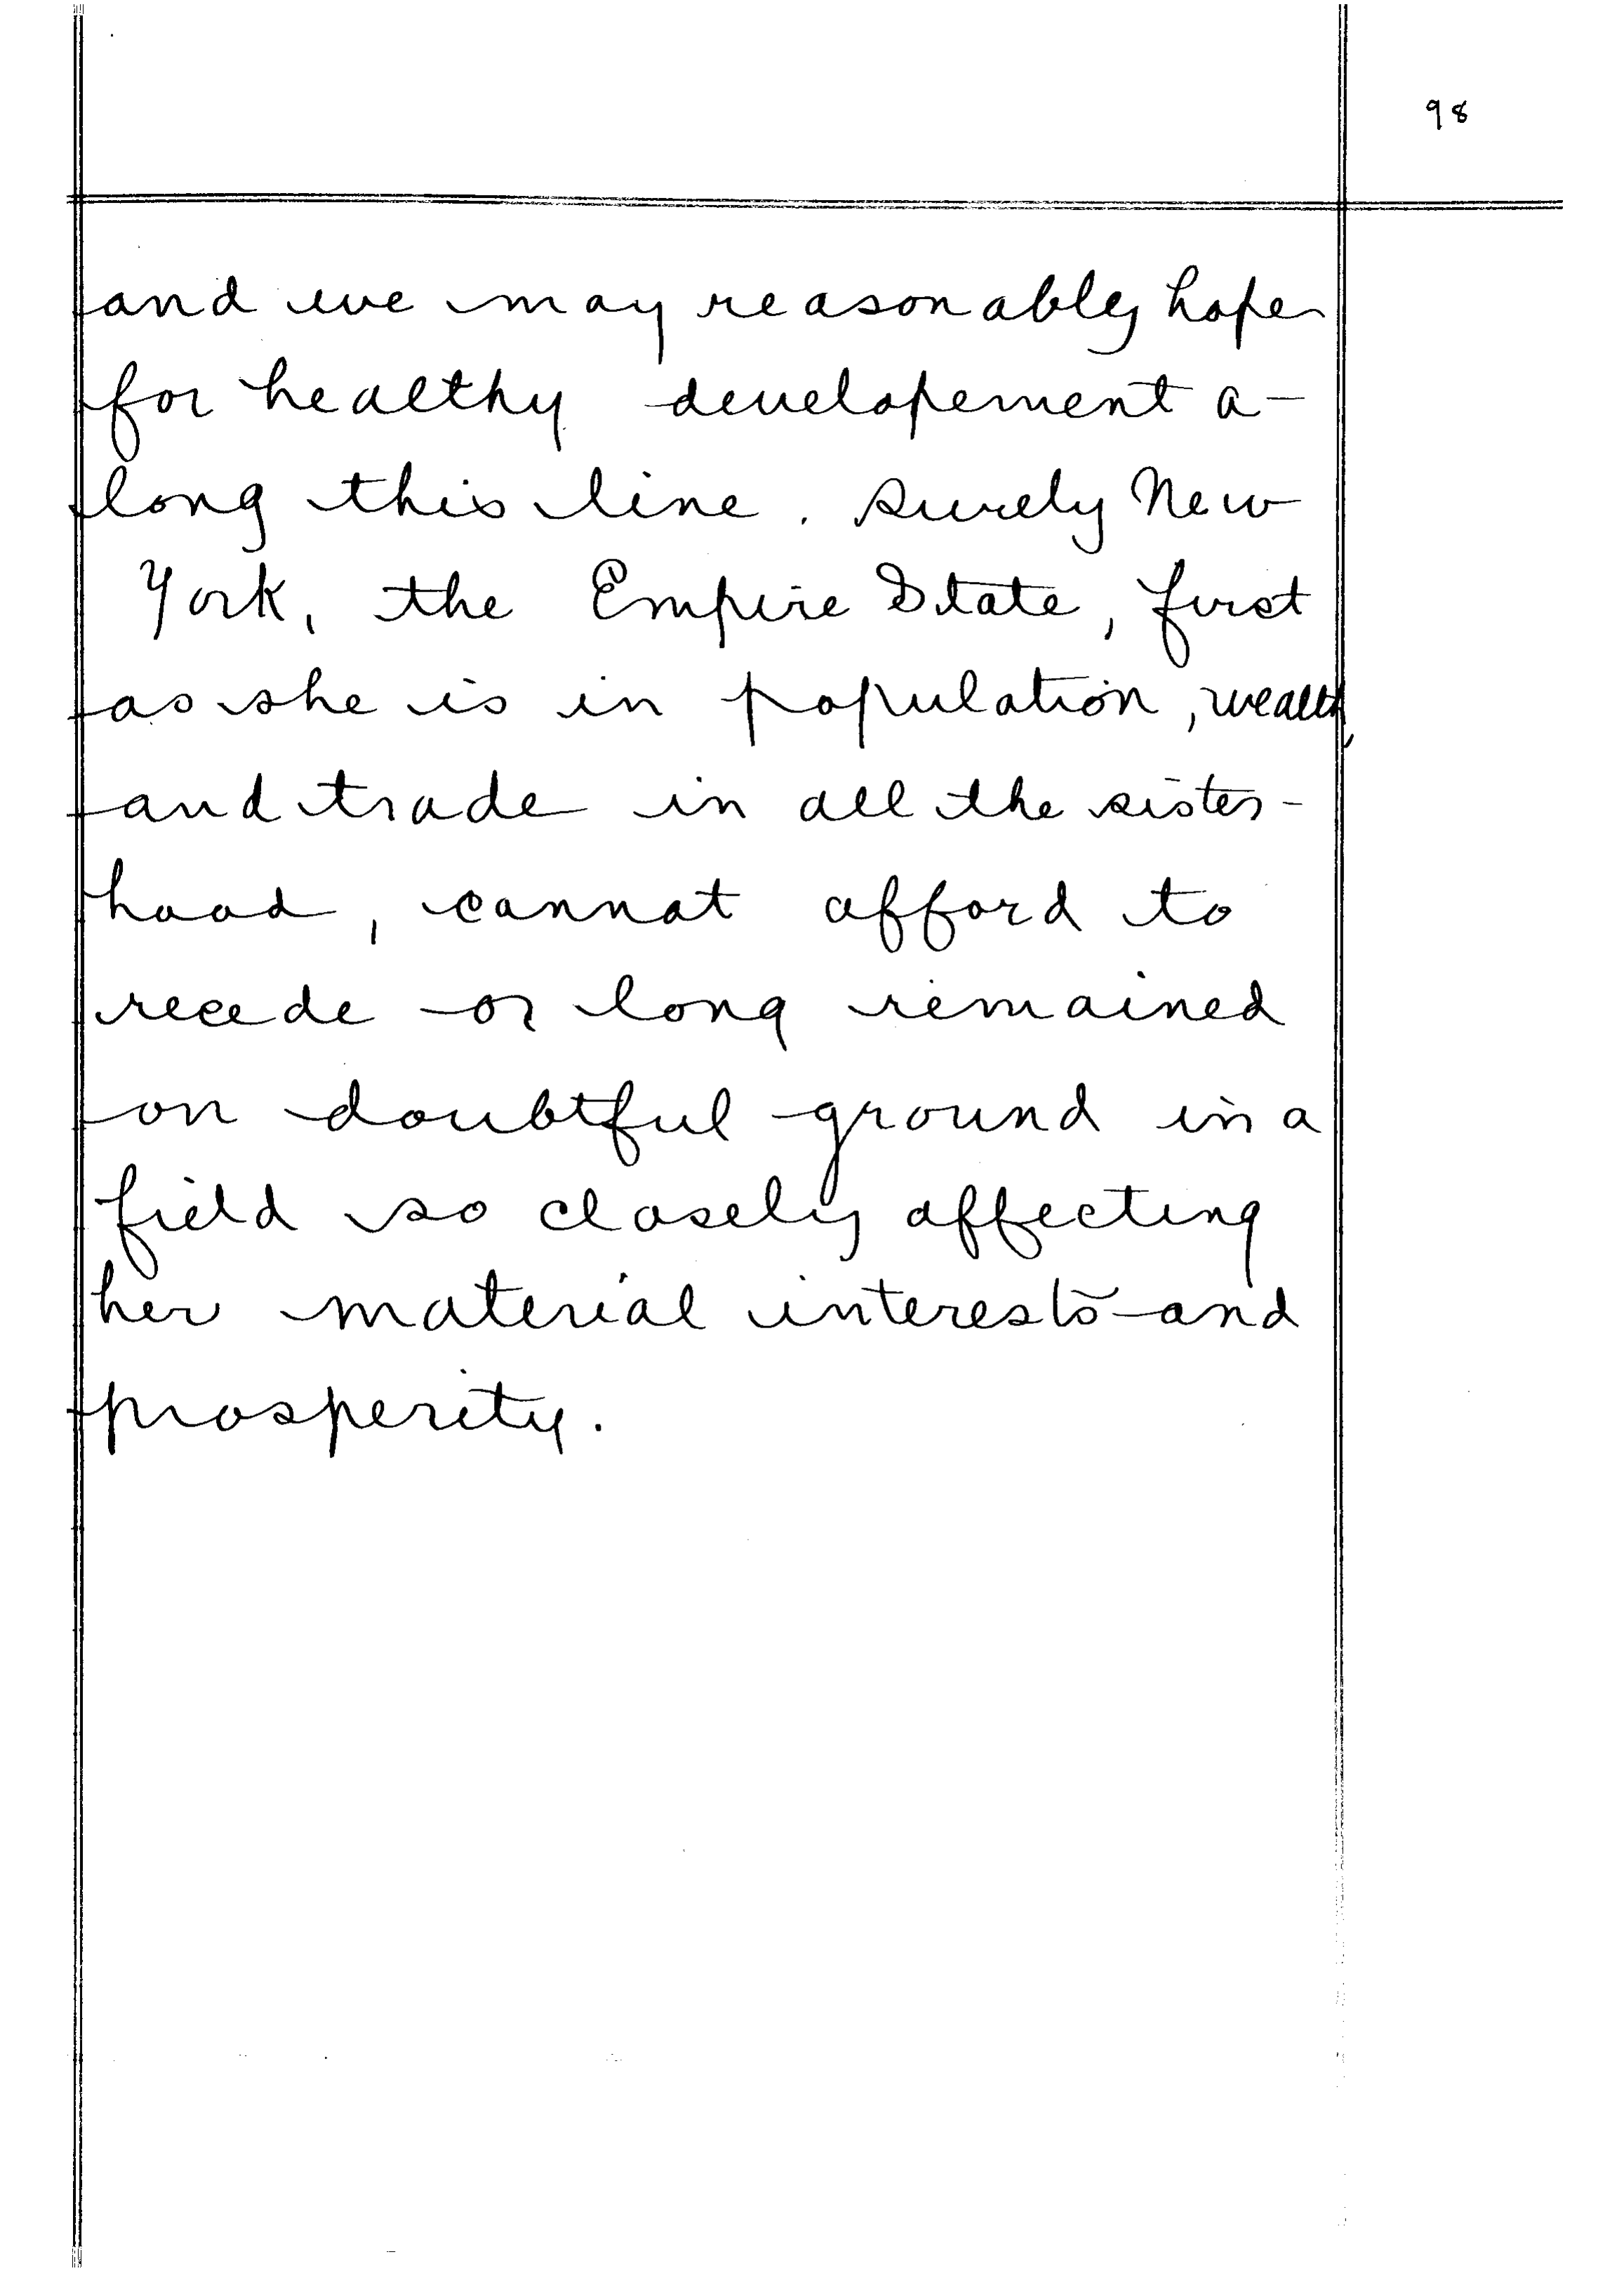 98
and we may reasonably hope
for healthy developement a-
long this line. Surely New
York, the Empire State, first
as she is in population, wealth,
and trade in all the sister-
hood, cannot afford to
recede or long remained
on doubtful ground in a
field so closely affecting
her material interests and
prosperity.